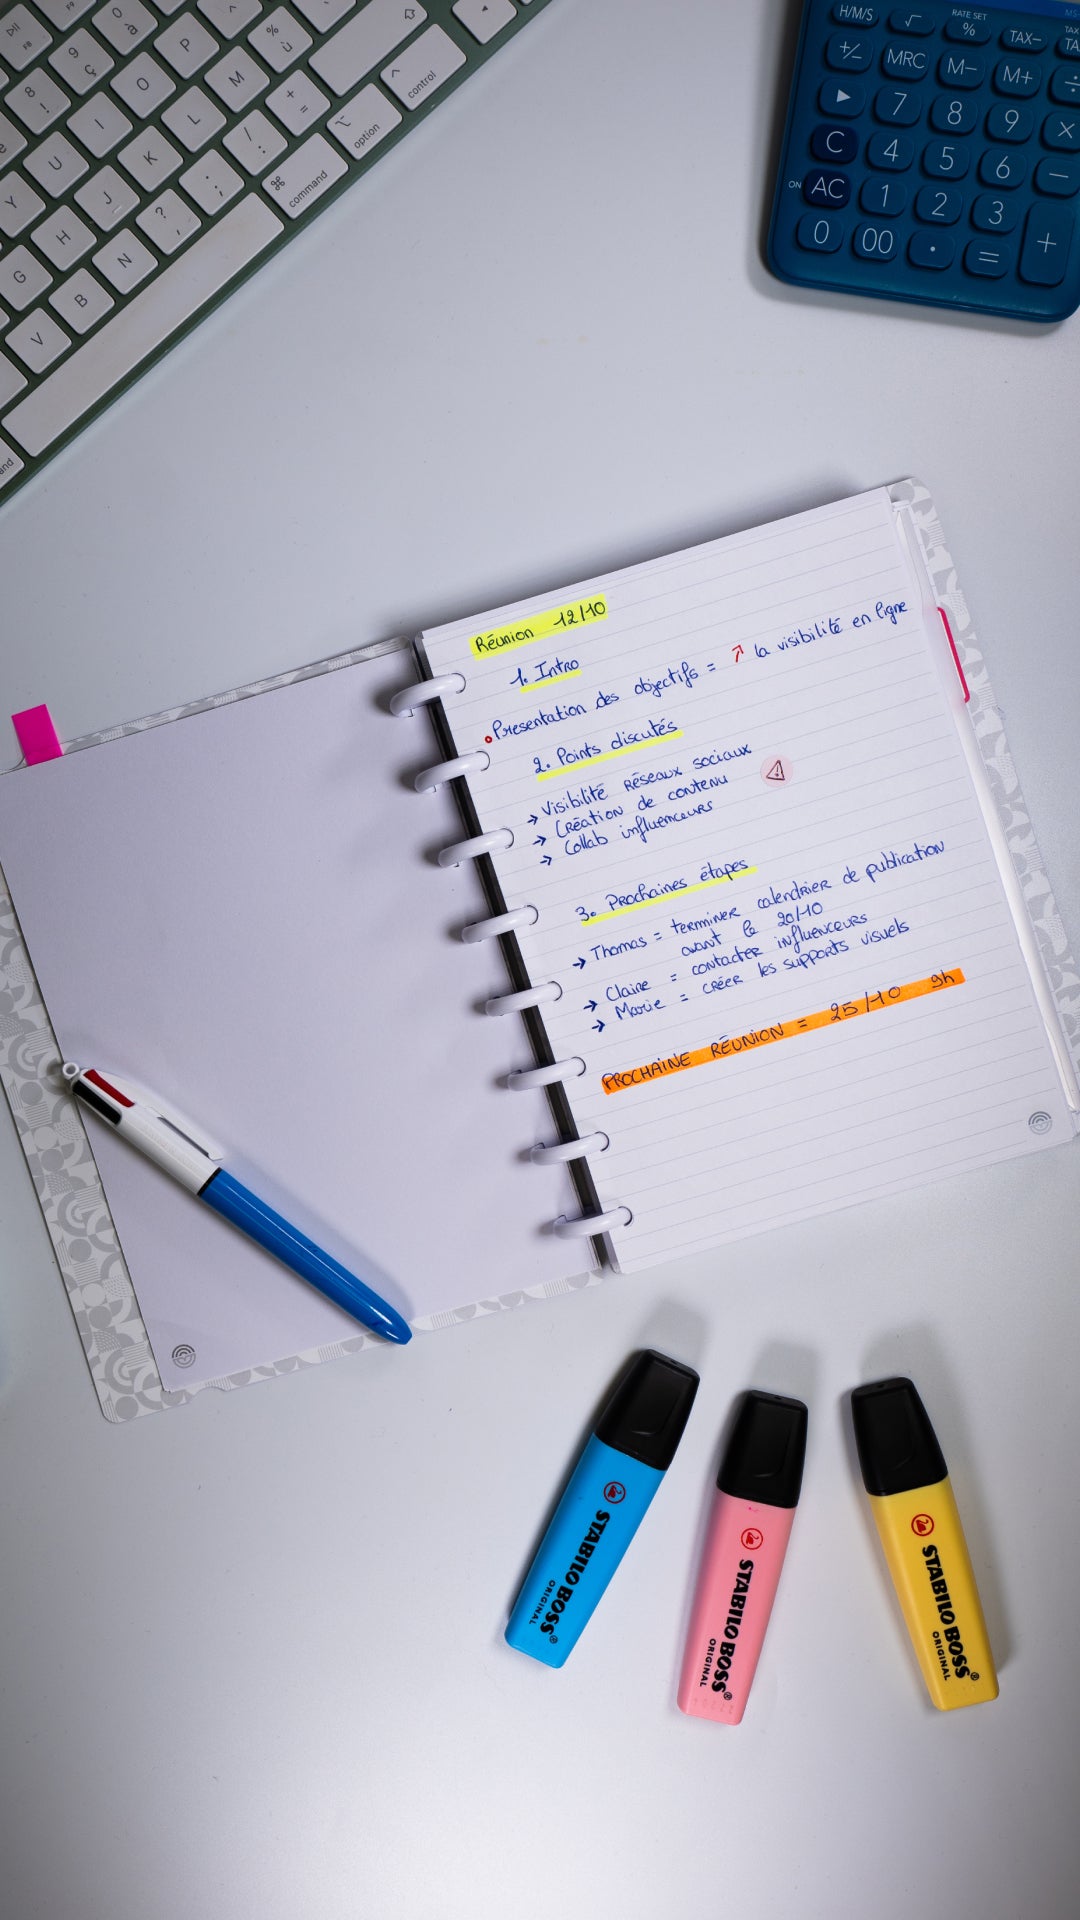 F8
F9
8
!
9
ç
0
à
^
%
ù
+
=
^
control
⌥
option
⌘
command
P
O
M
I
L
/
:
U
K
;
.
Y
J
?
,
H
N
G
B
V
e
and
H/M/S
√
RATE SET
%
TAX−
+/−
MRC
M−
M+
÷
▶
7
8
9
×
C
4
5
6
−
ON
AC
1
2
3
+
0
00
.
=
Réunion 12/10
1. Intro
• Presentation des objectifs = ↗ la visibilité en ligne
2. Points discutés
→ Visibilité Réseaux sociaux
→ Création de contenu
→ Collab influenceurs
3. Prochaines étapes
→ Thomas = terminer calendrier de publication
avant le 20/10
→ Claire = contacter influenceurs
→ Marie = créer les supports visuels
PROCHAINE RÉUNION = 25/10 9h
STABILO BOSS®
ORIGINAL
STABILO BOSS®
ORIGINAL
STABILO BOSS®
ORIGINAL